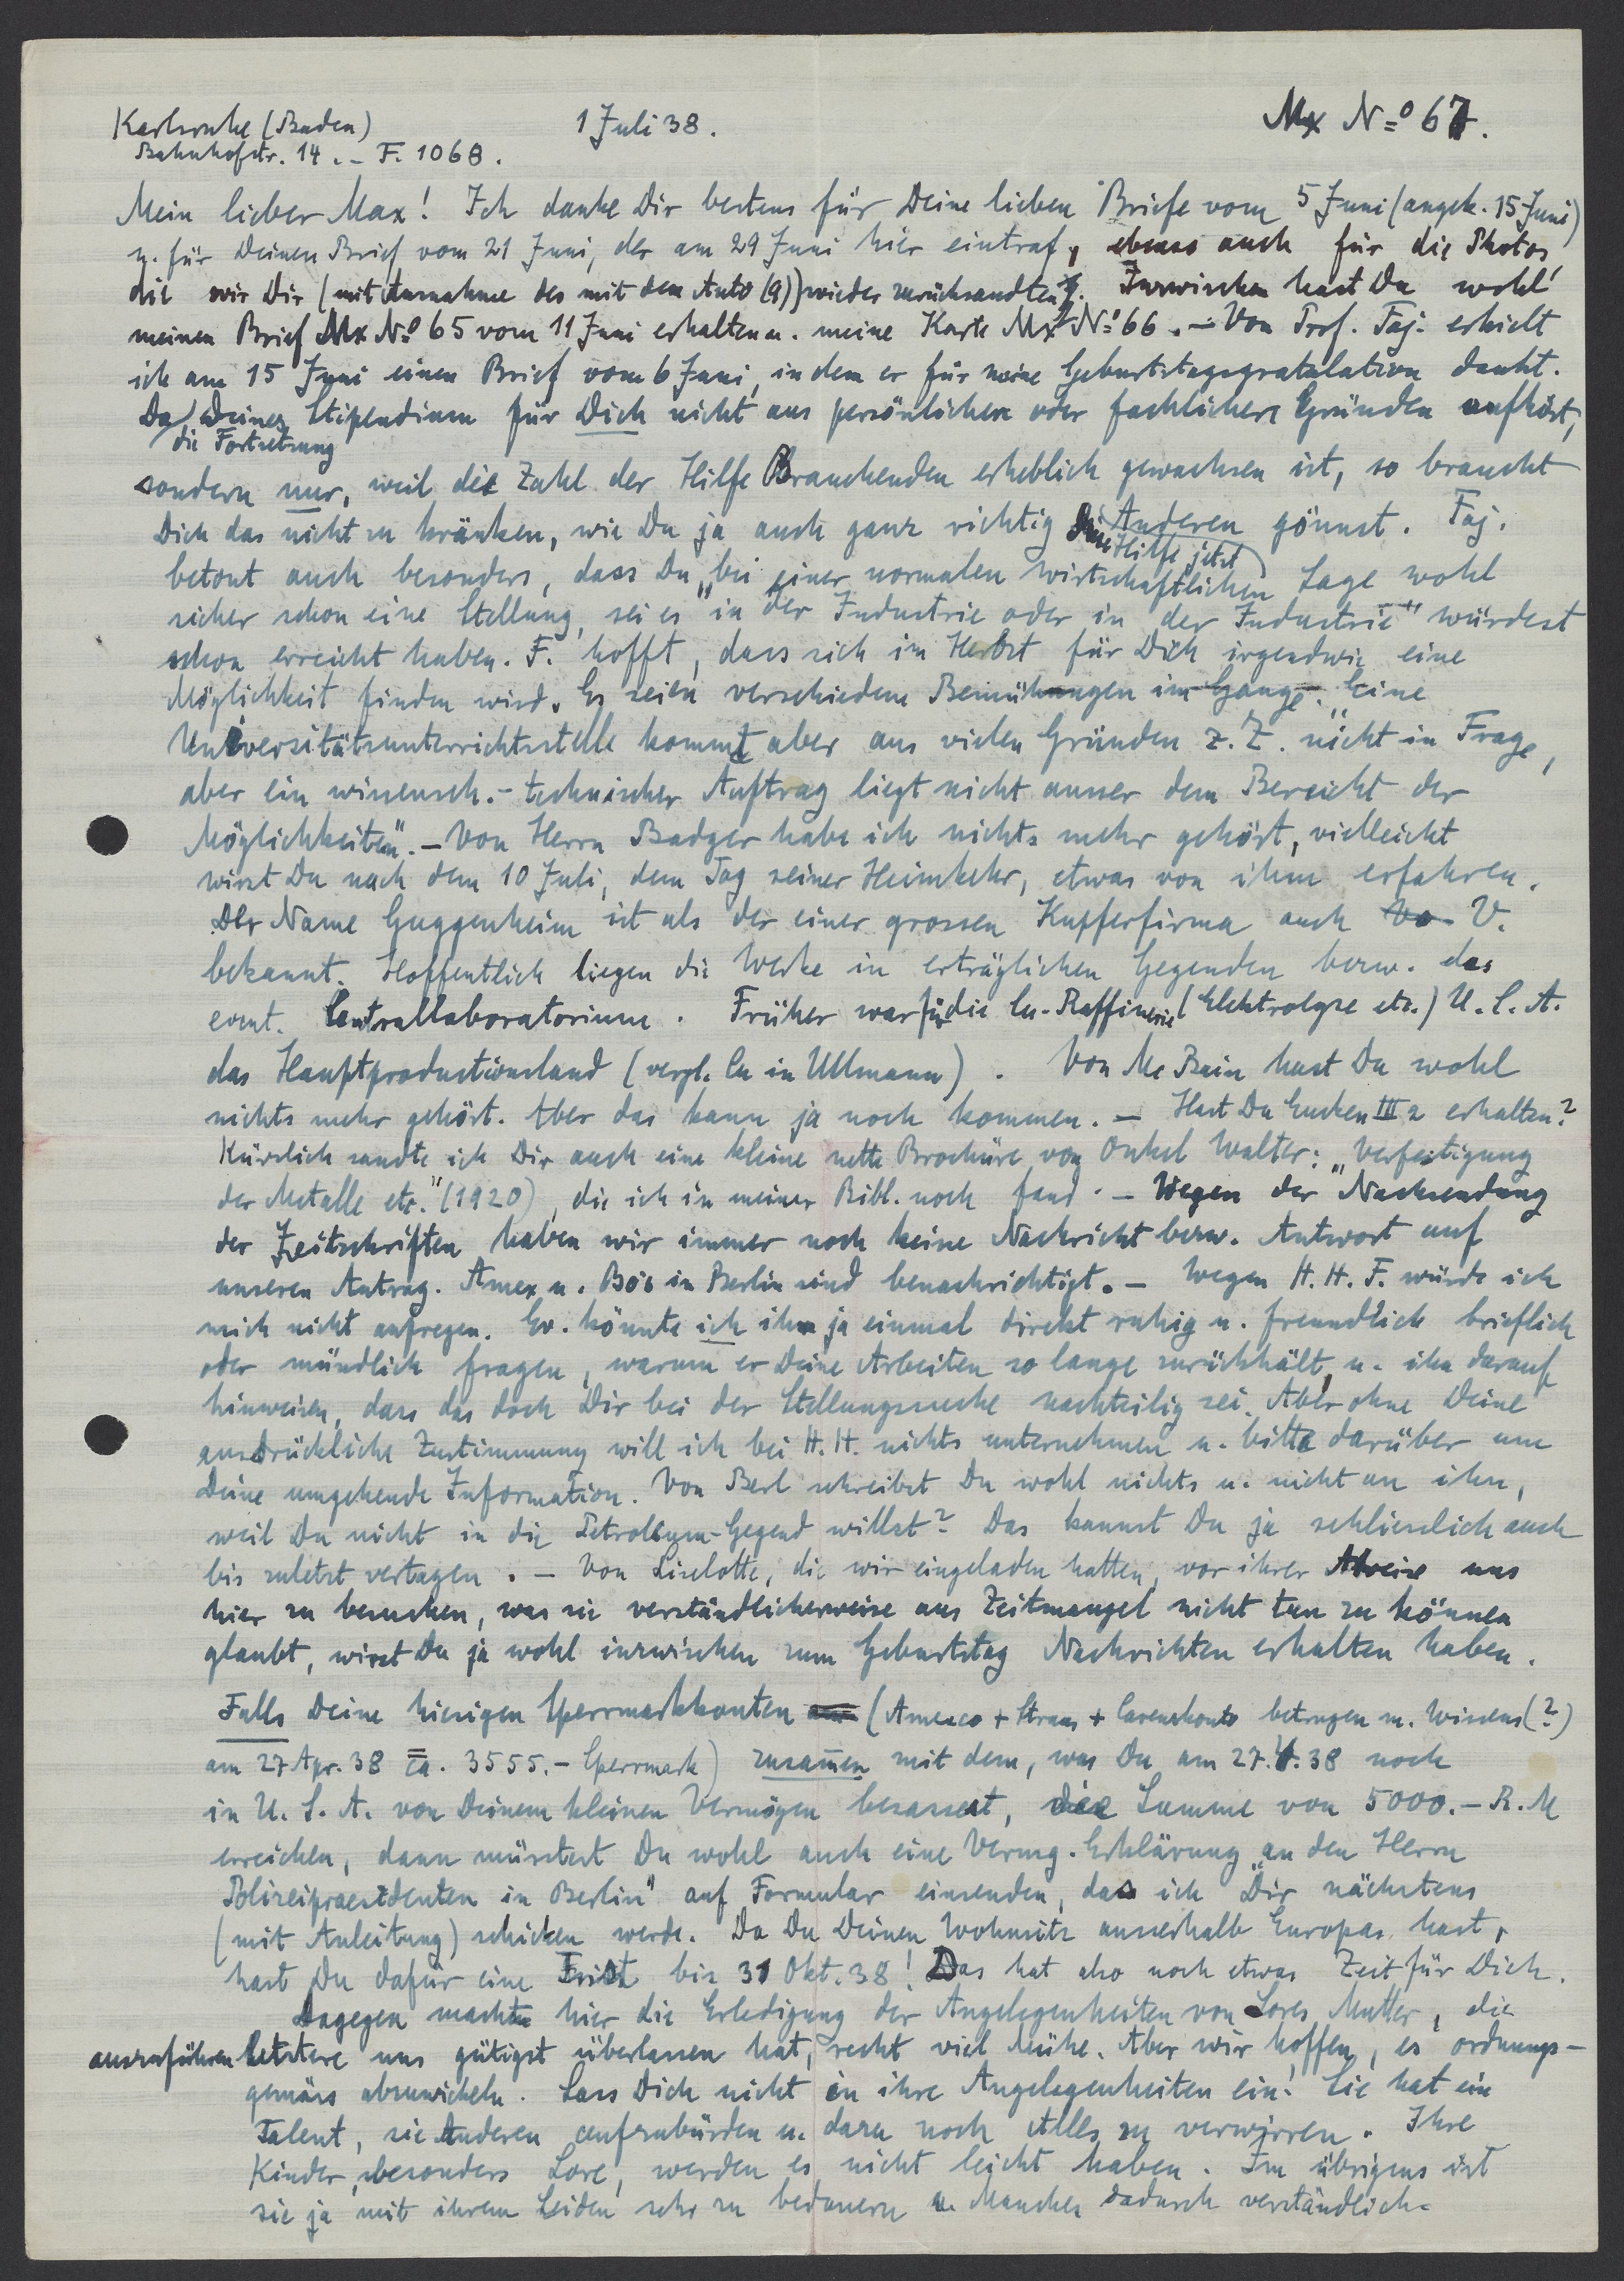 Karlsruhe (Baden) 1 Juli 38. Mx Nº 67.
Bahnhofstr. 14. - F. 1068.
Mein lieber Max! Ich danke Dir bestens für Deine lieben Briefe vom 5 Juni (angek. 15 Juni)
u. für Deinen Brief vom 21 Juni, der am 29 Juni hier eintraf, ebenso auch für die Photos,
die wir Dir (mit Ausnahme des mit dem Auto (9)) wieder zurücksandten. Inzwischen hast Du wohl
meinen Brief Mx Nº 65 vom 11 Juni erhalten u. meine Karte Mx Nº 66. - Von Prof. Faj. erhielt
ich am 15 Juni einen Brief vom 6 Juni, in dem er für meine Geburtstagsgratulation dankt.
Da die Fortsetzung Deines Stipendium für Dich nicht aus persönlichen oder fachlichen Gründen aufhört,
sondern nur, weil die Zahl der Hilfe Brauchenden erheblich gewachsen ist, so braucht
Dich das nicht zu kränken, wie Du ja auch ganz richtig diese Hilfe jetzt Anderen gönnst. Faj.
betont auch besonders, dass Du „bei einer normalen wirtschaftlichen Lage wohl
sicher schon eine Stellung, sei es in der Industrie oder in der Industrie" würdest
schon erreicht haben. F. hofft, dass sich im Herbst für Dich irgendwie eine
Möglichkeit finden wird. Es seien verschiedene Bemühungen im Gange. „Eine
Universitätsunterrichtsstelle kommt aber aus vielen Gründen z. Z. nicht in Frage,
aber ein wissensch.-technischer Auftrag liegt nicht ausser dem Bereicht der
Möglichkeiten". - Von Herrn Badger habe ich nichts mehr gehört, vielleicht
wirst Du nach dem 10 Juli, dem Tag seiner Heimkehr, etwas von ihm erfahren.
Der Name Guggenheim ist als der einer grossen Kupferfirma auch V.
bekannt. Hoffentlich liegen die Werke in erträglichen Gegenden bezw. das
event. Centrallaboratorium. Früher war für die Cu-Raffinerie (Elektrolyse etc.) U.S.A.
das Hauptproductionsland (vergl. Cu in Ullmann). Von Mc Bain hast Du wohl
nichts mehr gehört. Aber das kann ja noch kommen. - Hast Du Eucken III 2 erhalten?
Kürzlich sandte ich Dir auch eine kleine nette Brochüre von Onkel Walter: „Verfestigung
der Metalle etc." (1920), die ich in meiner Bibl. noch fand. - Wegen der Nachsendung
der Zeitschriften haben wir immer noch keine Nachricht bezw. Antwort auf
unseren Antrag. Amex u. Bös in Berlin sind benachrichtigt. - Wegen H. H. F. würde ich
mich nicht aufregen. Ev. könnte ich ihn ja einmal direkt ruhig u. freundlich brieflich
oder mündlich fragen, warum er Deine Arbeiten so lange zurückhält u. ihn darauf
hinweisen, dass das doch Dir bei der Stellungssuche nachteilig sei. Aber ohne Deine
ausdrückliche Zustimmung will ich bei H. H. nichts unternehmen u. bitte darüber um
Deine umgehende Information. Von Berl schreibst Du wohl nichts u. nicht an ihn,
weil Du nicht in die Petroleum-Gegend willst? Das kannst Du ja schliesslich auch
bis zuletzt vertagen. - Von Liselotte, die wir eingeladen hatten, vor ihrer Abreise uns
hier zu besuchen, was sie verständlicherweise aus Zeitmangel nicht tun zu können
glaubt, wirst Du ja wohl inzwischen zum Geburtstag Nachrichten erhalten haben.
Falls Deine hiesigen Sperrmarkkonten (Amexco + Straus + Carenskonto betrugen m. Wissens (?)
am 27 Apr. 38 = ca. 3555.- Sperrmark) zusammen mit dem, was Du am 27.4.38 noch
in U.S.A. von Deinem kleinen Vermögen besassest, die Summe von 5000.- R.M
erreichen, dann müsstest Du wohl auch eine Vermg. Erklärung „an den Herrn
Polizeipraesidenten in Berlin" auf Formular einsenden, das ich Dir nächstens
(mit Anleitung) schicken werde. Da Du Deinen Wohnsitz ausserhalb Europas hast,
hast Du dafür eine Frist bis 31 Okt. 38! Das hat also noch etwas Zeit für Dich.
Dagegen machte hier die Erledigung der Angelegenheiten von Lores Mutter, die
auszuführen letztere uns gütigst überlassen hat, recht viel Mühe. Aber wir hoffen, es ordnungs-
gemäss abzuwickeln. Lass Dich nicht in ihre Angelegenheiten ein! Sie hat ein
Talent, sie Anderen aufzubürden u. dazu noch Alles zu verwirren. Ihre
Kinder, besonders Lore, werden es nicht leicht haben. Im übrigens ist
sie ja mit ihrem Leiden sehr zu bedauern u. Manches dadurch verständlich.